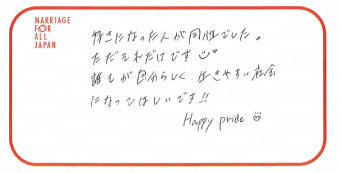 MARRIAGE
FOR
ALL
JAPAN
好きになった人が同性でした。
ただそれだけです
誰もが自分らしく、生きやすい社会
になってほしいです!!
Happy pride